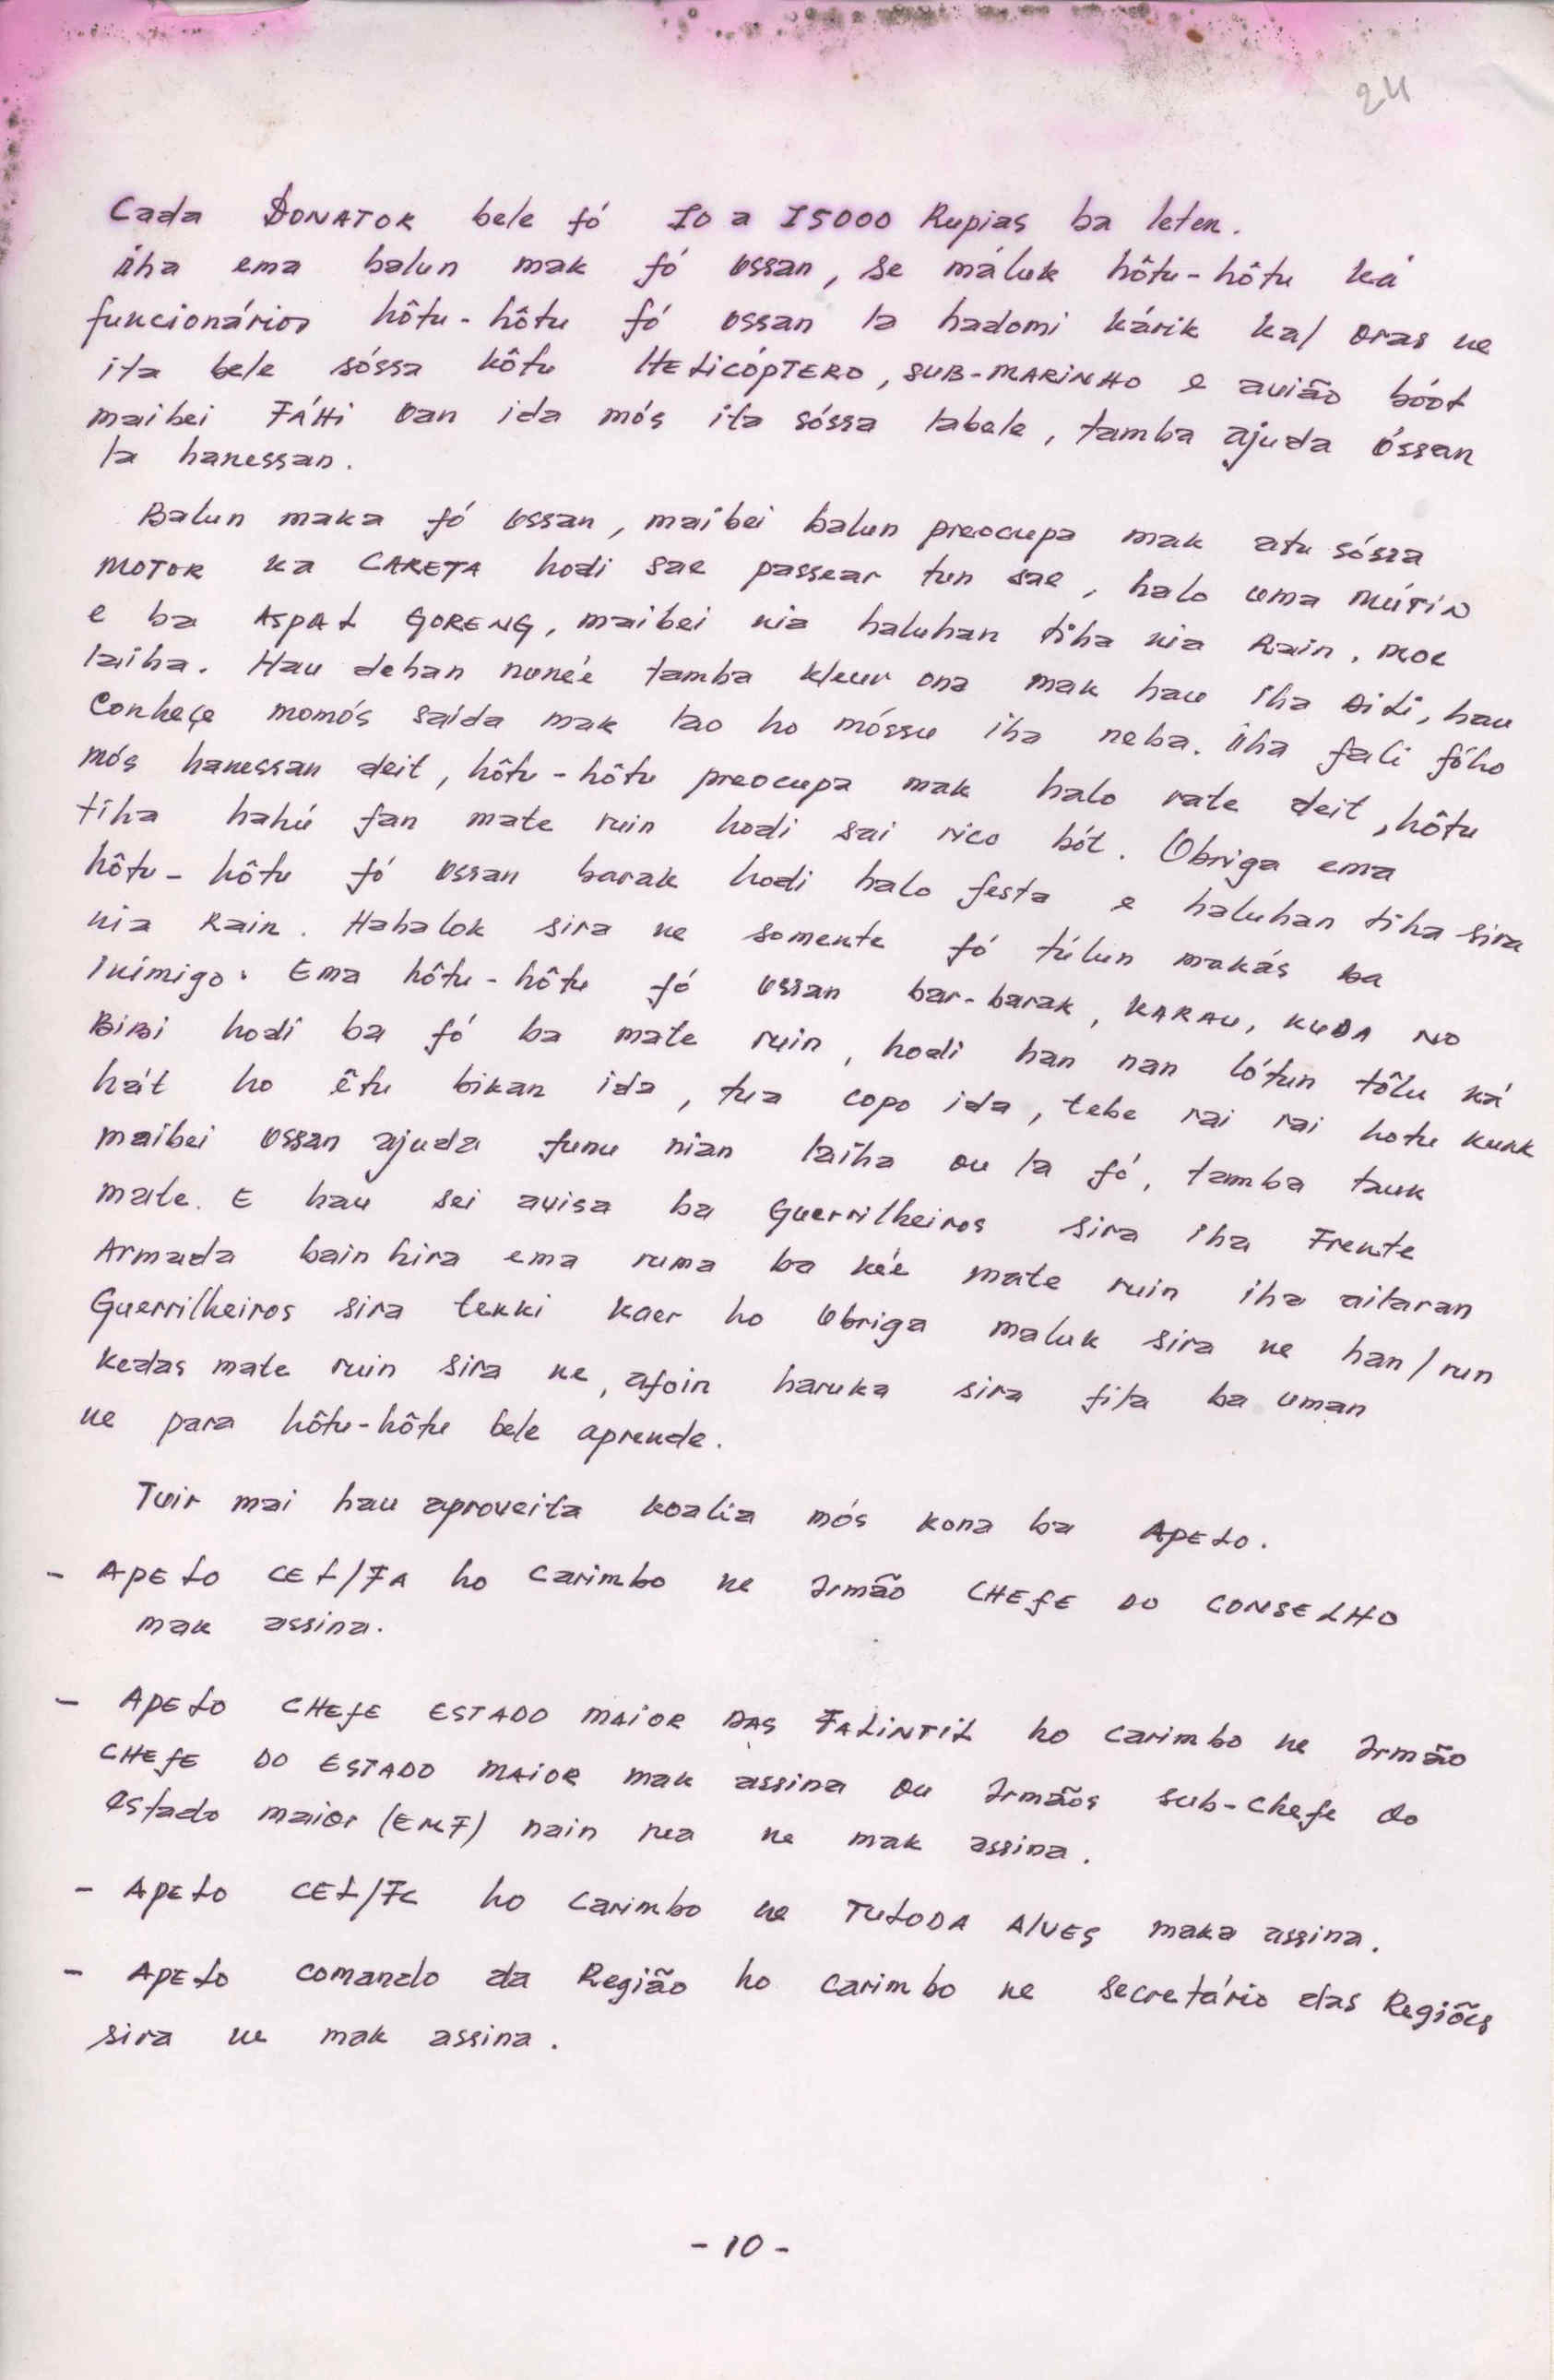 24
Cada DONATOR bele fó 10 a 15000 Rupias ba leten.
iha ema balun mak fó ossan, se máluk hôtu-hôtu ká
funcionários hôtu-hôtu fó ossan la hadomi kárik kal oras ne
ita bele sóssa hôtu HELICÓPTERO, SUB-MARINHO e avião bóot
maibei FÁHI oan ida mós ita sóssa labele, tamba ajuda óssan
la hanessan.
Balun maka fó ossan, maibei balun preocupa mak atu sóssa
MOTOR ka CARETA hodi sae passear tun sae, halo uma MÚTIN
e ba ASPAL GORENG, maibei nia haluhan tiha nia Rain, moe
laiha. Hau dehan nuné'e tamba kleur ona mak hau iha DILI, hau
Conheçe momós saída mak lao ho móssu iha neba. iha fali fóho
mós hanessan deit, hôtu-hôtu preocupa mak halo rate deit, hôtu
tiha hahú fan mate ruin hodi sai rico bót. Obriga ema
hôtu-hôtu fó ossan barak hodi halo festa e haluhan tiha sira
nia Rain. Hahalok sira ne somente fó túlun makás ba
Inímigo. Ema hôtu-hôtu fó ossan bar-barak, KARAU, KUDA NO
BIBI hodi ba fó ba mate ruin, hodi han nan lótun tôlu ká
hát ho êtu bikan ida, tua copo ida, tebe rai rai hotu
maibei ossan ajuda funu nian laiha ou la fó, tamba tauk
mate. E hau sei avisa ba Guerrilheiros sira iha Frente
Armada bain hira ema ruma ba ké'e mate ruin iha ailaran
Guerrilheiros sira tenki kaer ho obriga maluk sira ne han/run
kedas mate ruin sira ne, afoin haruka sira fila ba uman
ne para hôtu-hôtu bele aprende.
Tuir mai hau aproveita koalia mós kona ba APELO.
- APELO CEL/FA ho carimbo ne Irmão CHEFE DO CONSELHO
mak assina.
- APELO CHEFE ESTADO MAIOR DAS FALINTIL ho carimbo ne Irmão
CHEFE DO ESTADO MAIOR mak assina ou Irmãos sub-chefe do
estado maior (EMF) nain rua ne mak assina.
- APELO CEL/FC ho carimbo ne TULODA ALVES maka assina.
- APELO comando da Região ho carimbo ne secretário das Regiões
sira ne mak assina.
- 10 -